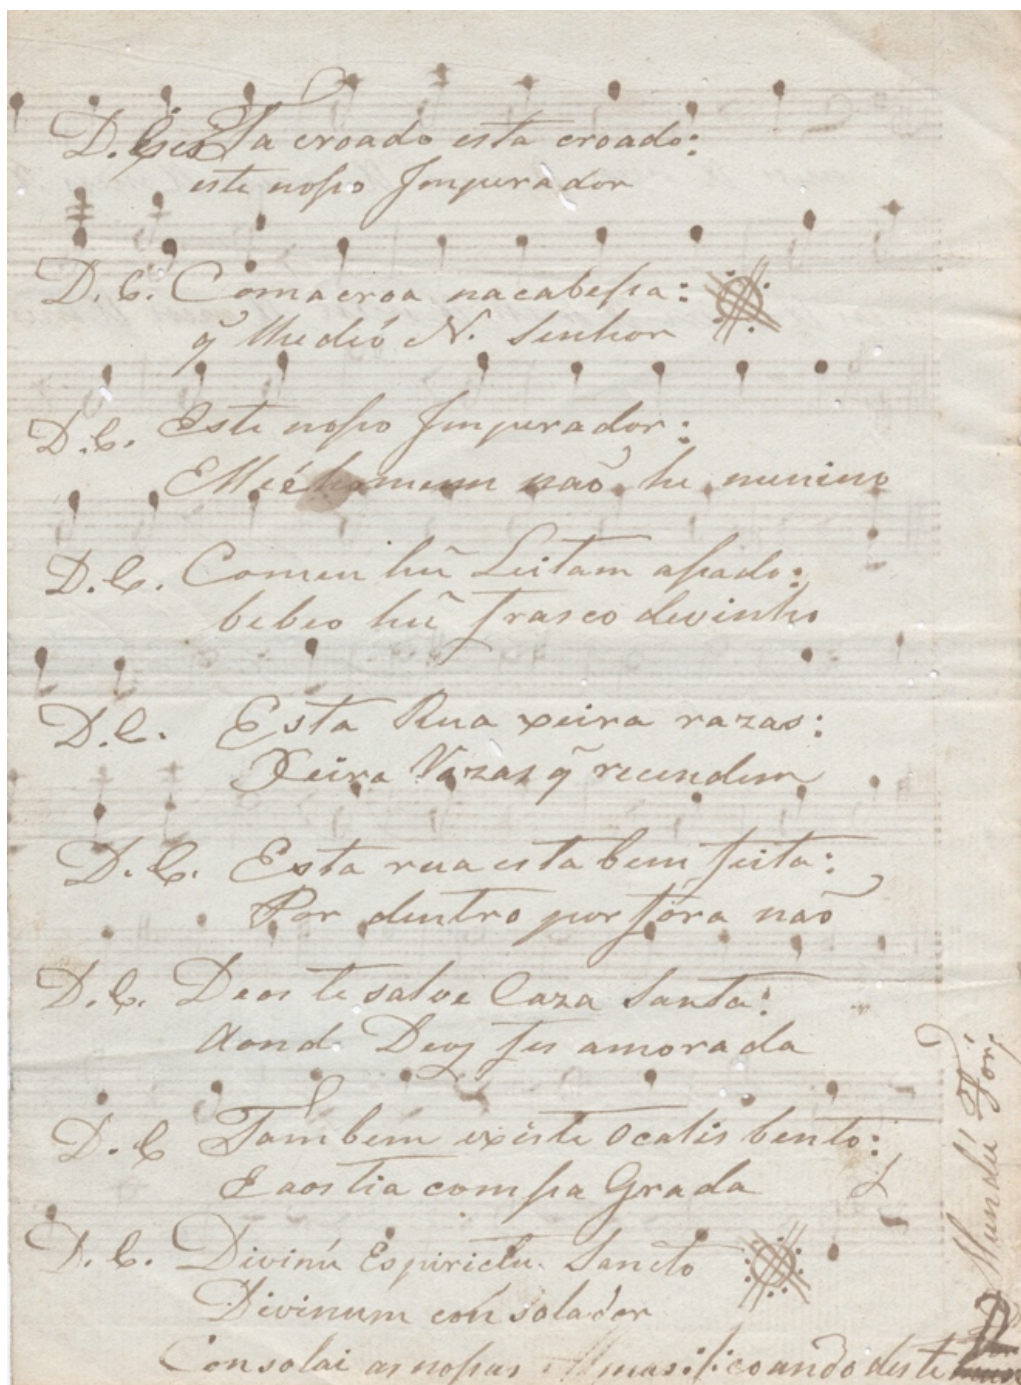 D. C. esTa croado esta croado:
este nosso Imperador
D. C. Comacroa nacabessa:
q̃ lhe deó N. Senhor
D. C. Este nosso Imperador:
Elle é homem não he menino
D. C. Comeu hũ Leitam assado:
bebeo hũ frasco devinho
D. C. Esta Rua xeira razas:
Xeira q̃ recendem
D. C. Esta rua esta bem feita:
Por dentro por fora não
D. C. Deos te salve Caza Santa:
Aond. Deos fes amorada
D. C Tambem existe Ocalis bento:
E aostia comssa Grada
D. C. Diviniı Espirictu Sancto
Divinum consolador
Consolai as nossas Almas coando deste